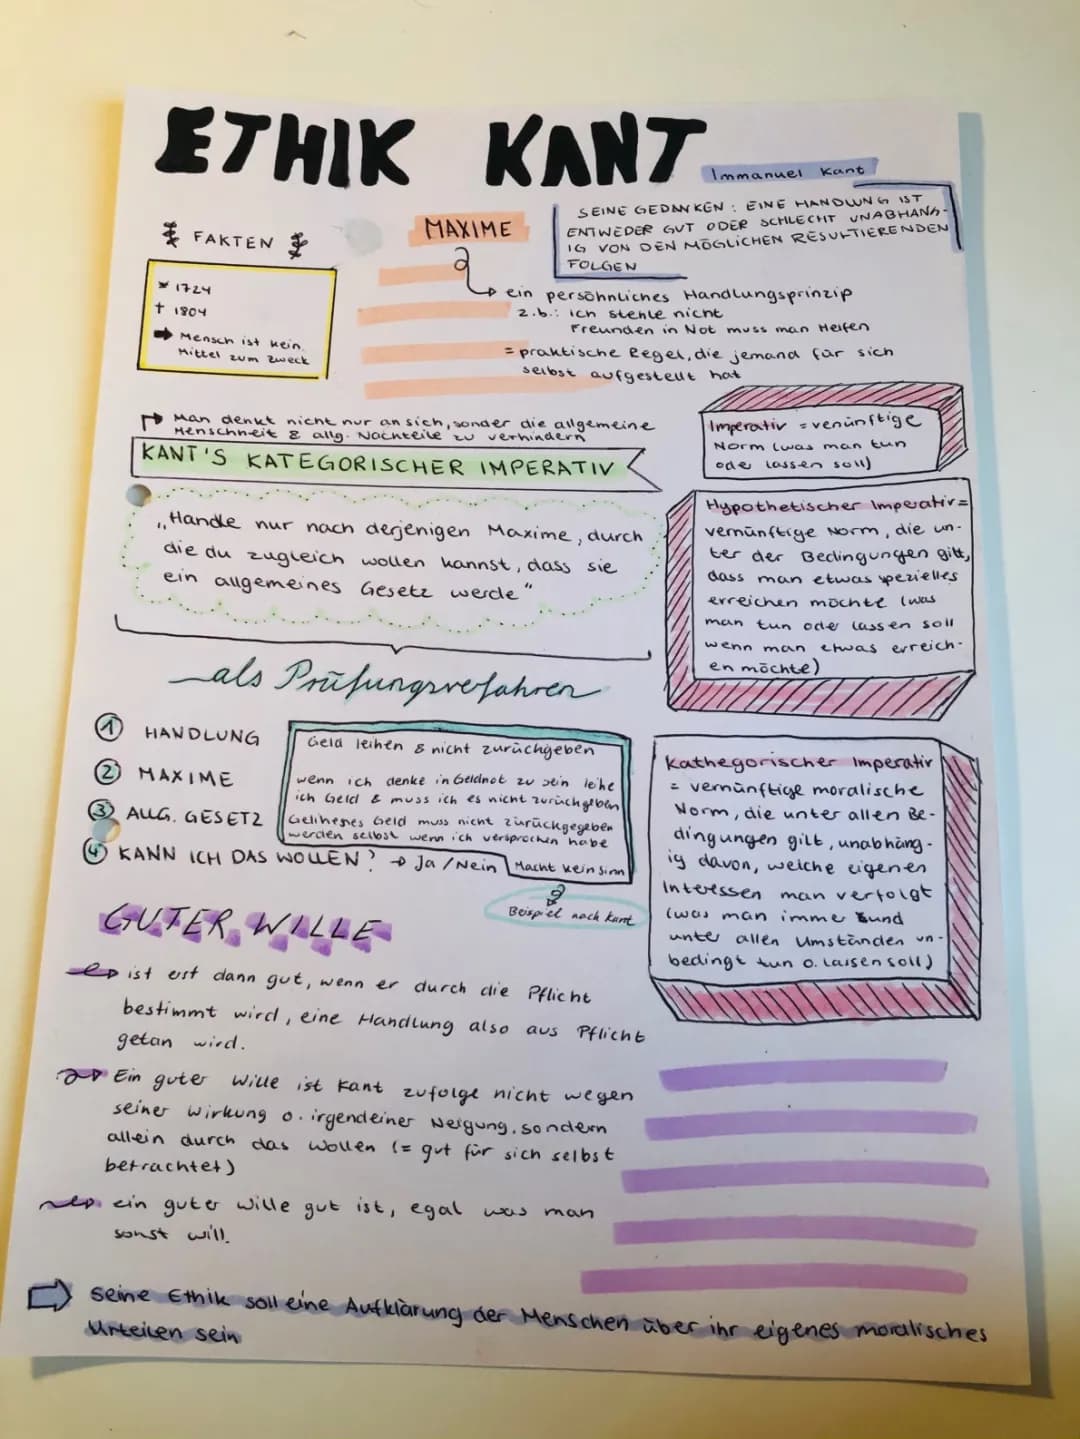 ETHIK KANT
Immanuel Kant
SEINE GEDANKEN: EINE HANDLUNG IST
ENTWEDER GUT ODER SCHLECHT UNABHÄNG-
IG VON DEN MÖGLICHEN RESULTIERENDEN
FOLGEN
FAKTEN
* 1724
† 1804
➡ Mensch ist kein
Mittel zum zweck
MAXIME
ein persöhnliches Handlungsprinzip
z.b.: ich stehle nicht
Freunden in Not muss man Helfen
= praktische Regel, die jemand für sich
selbst aufgestellt hat
Man denkt nicht nur an sich, sonder die allgemeine
Menschheit & allg. Nachteile zu verhindern
KANT'S KATEGORISCHER IMPERATIV
„Handle nur nach derjenigen Maxime, durch
die du zugleich wollen kannst, dass sie
ein allgemeines Gesetz werde"
Imperativ = venünftige
Norm (was man tun
ode lassen soll)
Hypothetischer Imperativ =
vernünftige Norm, die un-
ter der Bedingungen gilt,
dass man etwas spezielles
erreichen möchte (was
man tun oder lassen soll
wenn man etwas erreich-
en möchte)
als Prüfungsverfahren
① HANDLUNG
② MAXIME
③ ALLG. GESETZ
④ KANN ICH DAS WOLLEN? → Ja / Nein
Geld leihen & nicht zurückgeben
wenn ich denke in Geldnot zu sein leihe
ich Geld & muss ich es nicht zurückgeben
Geliehenes Geld muss nicht zurückgegeben
werden selbst wenn ich versprochen habe
Macht kein sinn
Beispiel nach Kant
Kathegorischer Imperativ
= vernünftige moralische
Norm, die unter allen Be-
dingungen gilt, unabhäng-
ig davon, welche eigenen
Interessen man verfolgt
(was man imme und
unter allen Umständen un-
bedingt tun o. lassen soll)
GUTER WILLE
ist erst dann gut, wenn er durch die Pflicht
bestimmt wird, eine Handlung also aus Pflicht
getan wird.
Ein guter Wille ist Kant zufolge nicht wegen
seiner Wirkung o. irgendeiner Neigung, sondern
allein durch das wollen (= gut für sich selbst
betrachtet)
ein guter Wille gut ist, egal was man
sonst will.
Seine Ethik soll eine Aufklärung der Menschen über ihr eigenes moralisches
Urteilen sein